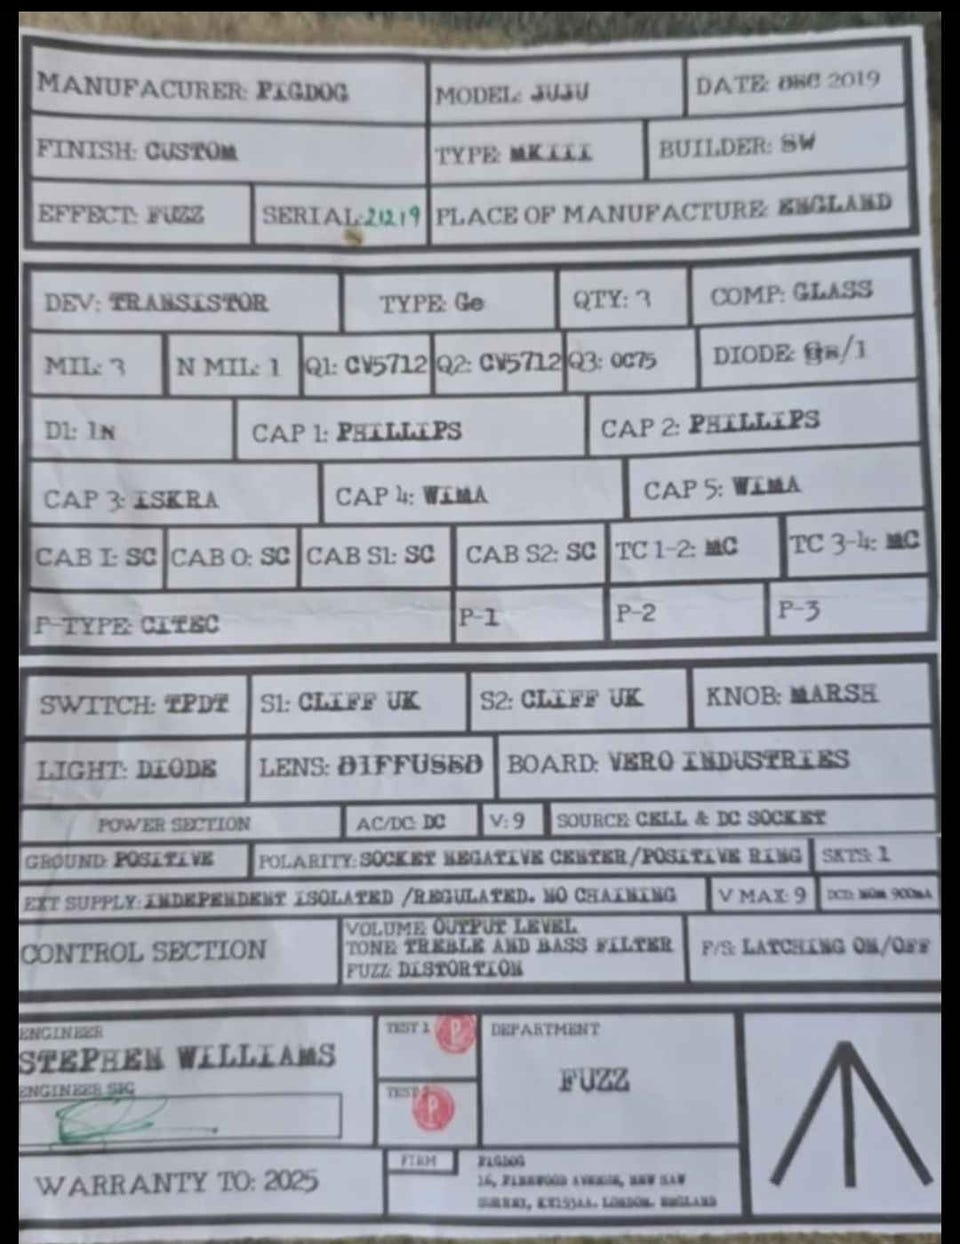 MANUFACURER: PIGDOG
MODEL: JUJU
DATE: DEC 2019
FINISH: CUSTOM
TYPE: MKIII
BUILDER: SW
EFFECT: FUZZ
SERIAL: 21219
PLACE OF MANUFACTURE: ENGLAND
DEV: TRANSISTOR
TYPE: Ge
QTY: 3
COMP: GLASS
MIL: 3
N MIL: 1
Q1: CV5712
Q2: CV5712
Q3: OC75
DIODE: /1
D1: 1N
CAP 1: PHILLIPS
CAP 2: PHILLIPS
CAP 3: ISKRA
CAP 4: WIMA
CAP 5: WIMA
CAB I: SC
CAB O: SC
CAB S1: SC
CAB S2: SC
TC 1-2: MC
TC 3-4: MC
P-TYPE: CITEC
P-1
P-2
P-3
SWITCH: TPDT
S1: CLIFF UK
S2: CLIFF UK
KNOB: MARSH
LIGHT: DIODE
LENS: DIFFUSED
BOARD: VERO INDUSTRIES
POWER SECTION
AC/DC: DC
V: 9
SOURCE: CELL & DC SOCKET
GROUND: POSITIVE
POLARITY: SOCKET NEGATIVE CENTER/POSITIVE RING
SKTS: 1
EXT SUPPLY: INDEPENDENT ISOLATED /REGULATED. NO CHAINING
V MAX: 9
CONTROL SECTION
VOLUME: OUTPUT LEVEL
TONE: TREBLE AND BASS FILTER
FUZZ: DISTORTION
F/S: LATCHING ON/OFF
ENGINEER
STEPHEN WILLIAMS
ENGINEER SIG
TEST 1
P
TEST
P
DEPARTMENT
FUZZ
WARRANTY TO: 2025
FIRM
PIGDOG
16, AVENUE, NEW
SURREY, LONDON. ENGLAND